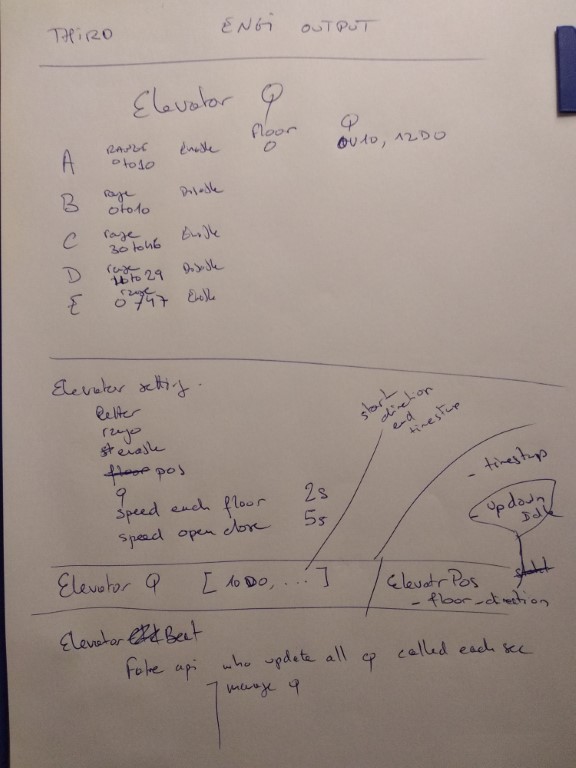 THIRD ENGI OUTPUT
Elevator Q
floor Q
A RANGE 0to10 Enable 0 0U10, 12D0
B range 0to10 Disable
C range 30to46 Enable
D range to29 Disable
E range 0/47 Enable
Elevator setting.
letter
range
enable
floor pos
q
speed each floor 2s
speed open close 5s
start direction end timestup
- timestup
- Updown Idle
Elevator Q [10D0, ...]
ElevatrPos
- floor - direction
Elevator Beat
Fake api who update all qp called each sec
manage q